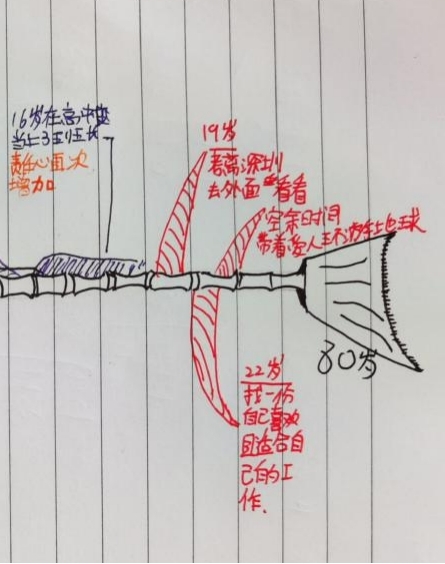 16岁在高中时
当上了班长
责任心再次
增加
19岁
离深圳
去外面看看
空余时间
带着爱人环游地球
80岁
22岁
找一份
自己喜欢
且适合自
己的工
作.